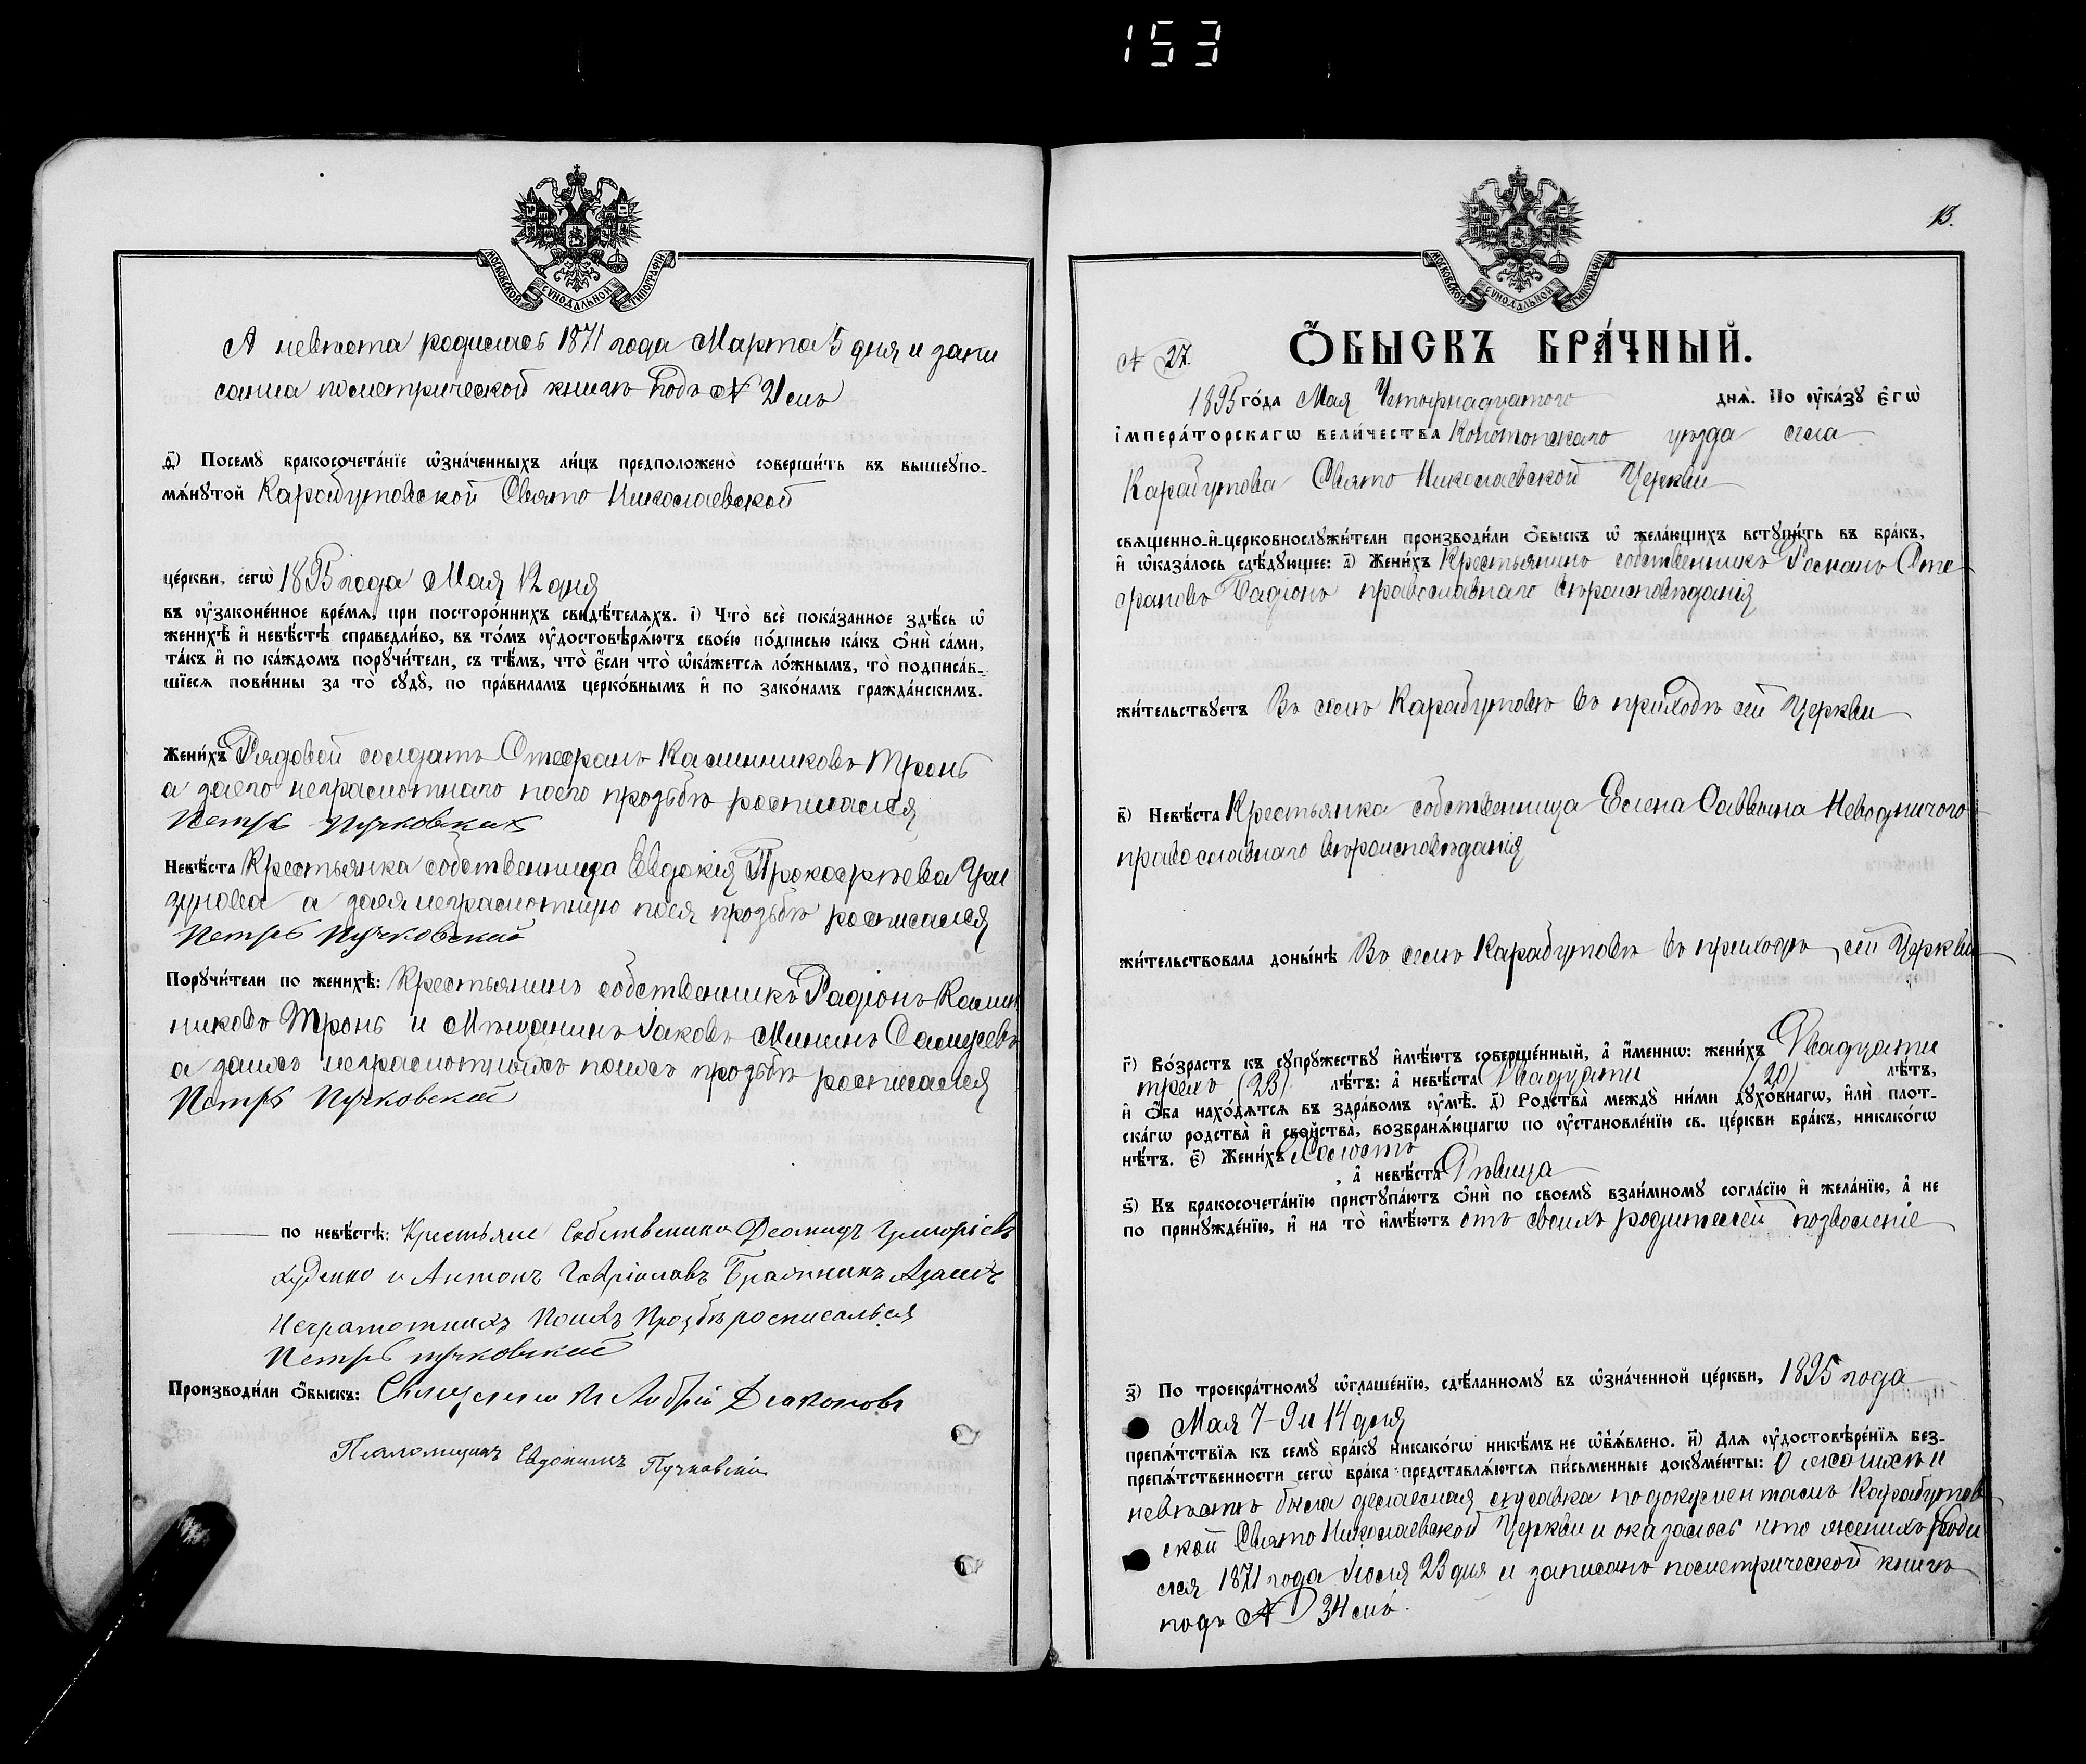 153
МОСКОВСКОЙ СУНОДАЛЬНОЙ ТИПОГРАФІИ
А невѣста родилась 1871 года Марта 5 дня и запи
санна пометрической книгѣ подъ № 21 емъ
д҃) Посемꙋ бракосочета́нїе ѡ҆зна́ченныхъ ли́цъ предположено̀ соверши́ть въ вышеꙋпо-
мѧ́нꙋтой Карабутовской Свято Николаевской
це́ркви, сегѡ̀ 1895 года Мая 12 дня
въ оу҆законе́нное вре́мѧ, при посторо́ннихъ свидѣ́телѧхъ. і҃) Что̀ всѐ пока́занное здѣ́сь ѡ҆
женихѣ̀ и҆ невѣ́стѣ справедли́во, въ то́мъ оу҆достовѣрѧ́ютъ свое́ю по́дписью ка́къ ѻ҆нѝ са́ми,
та́къ и҆ по ка́ждомъ порꙋчи́тели, съ тѣ́мъ, что̀ є҆́сли что̀ ѡ҆ка́жетсѧ ло́жнымъ, то̀ подписа́в-
шїесѧ пови́нны за то̀ сꙋдꙋ̀, по пра́виламъ церко́внымъ и҆ по зако́намъ гражда́нскимъ.
Жени́хъ Рядовой солдатъ Стефанъ Калинниковъ Тронь
а заего неграмотнаго поего прозьбѣ росписался
Петръ Пучковский
Невѣ́ста Крестьянка собственница Евдокія Прокофіева
а заея неграмотную поея прозьбѣ росписался
Петръ Пучковский
Порꙋчи́тели по женихѣ̀: Крестьянинъ собственникъ Радіонъ Калин
никовъ Тронь и Мѣщанинъ Іаковъ Мининъ
а заихъ неграмотныхъ поихъ прозьбѣ росписался
Петръ Пучковский
по невѣ́стѣ: Крестьяне Собственники Григоріевъ
и Антонъ Гавріиловъ Азаихъ
Неграмотныхъ Поихъ Прозбѣ росписалься
Петръ Пучковский
Производи́ли ѻ҆́быскъ: Священникъ Діаконовъ
Псаломщикъ Евдокимъ Пучковскій
13.
МОСКОВСКОЙ СУНОДАЛЬНОЙ ТИПОГРАФІИ
Ѻ҆́БЫСКЪ БРА́ЧНЫЙ.
№ 27.
1895 го́да Мая Четырнадцатого днѧ̀. По оу҆ка́зꙋ є҆гѡ̀
і҆мпера́торскагѡ вели́чества Конотопскаго уѣзда села
Карабутова Свято Николаевской Церкви
свѧщенно-и҆-церковнослꙋжи́тели производи́ли ѻ҆́быскъ ѡ҆ жела́ющихъ встꙋпи́ть въ бра́къ,
и҆ ѡ҆каза́лось слѣ́дꙋющее: а҃) Жени́хъ Крестьянинъ собственникъ Романъ Сте
фановъ православнаго вѣроисповѣданія
жи́тельствꙋетъ Въ селѣ Карабутовѣ въ приходѣ сей Церкви
в҃) Невѣ́ста Крестьянка собственница Елена Саввина Неводничого
православнаго вѣроисповѣданія
жи́тельствовала доны́нѣ Въ селѣ Карабутовѣ въ приходѣ сей Церкви
г҃) Во́зрастъ къ сꙋпрꙋ́жествꙋ и҆мѣ́ютъ соверше́нный, а҆ и҆́меннѡ: жени́хъ Двадцати
трехъ (23) лѣ́тъ: а҆ невѣ́ста Двадцати (20) лѣ́тъ,
и҆ ѻ҆́ба нахо́дѧтсѧ въ здра́вомъ оу҆мѣ̀. д҃) Родства̀ междꙋ̀ ни́ми дꙋхо́внагѡ, и҆лѝ плот-
ска́гѡ родства̀ и҆ сво́йства, возбранѧ́ющагѡ по оу҆становле́нїю св. це́ркви бра́къ, никако́гѡ
нѣ́тъ. є҃) Жени́хъ Холостъ
, а҆ невѣ́ста Дѣвица
ѕ҃) Къ бракосочета́нїю пристꙋпа́ютъ ѻ҆нѝ по своемꙋ̀ взаи́мномꙋ согла́сїю и҆ жела́нїю, а҆ не
по принꙋжде́нїю, и҆ на то̀ и҆мѣ́ютъ отъ своихъ родителей позволеніе
з҃) По троекра́тномꙋ ѡ҆глаше́нїю, сдѣ́ланномꙋ въ ѡ҆зна́ченной це́ркви, 1895 года
Мая 7-9 и 14 дня
препѧ́тствїѧ къ семꙋ̀ бра́кꙋ никако́гѡ никѣ́мъ не ѡ҆б̾ѧ́влено. и҃) Длѧ оу҆достовѣре́нїѧ без-
препѧ́тственности сегѡ̀ бра́ка представлѧ́ютсѧ пи́сьменные докꙋме́нты: О женихѣ и
невѣстѣ была делаемая справка подокументамъ Карабутов
ской Свято Николаевской Церкви и оказалось что женихъ роди
лся 1871 года Іюля 23 дня и записанъ пометрической книгѣ
подъ № 34 емъ.